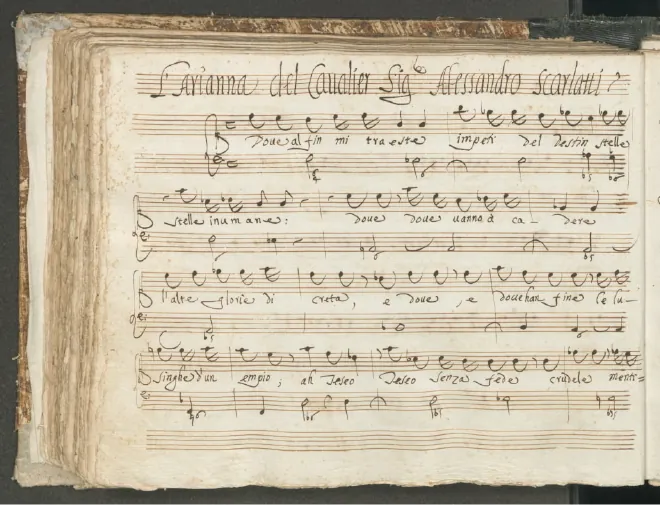 L'Arianna del Cavalier Sig.re Alessandro Scarlatti
Doue al fin mi traeste imperi del destin stelle
stelle inumane: doue doue uanno à ca - dere
l'alte glorie di creta, e doue, e doue han fine le lu-
singhe d'un empio; ah Teseo Teseo senza fede crudele menti=